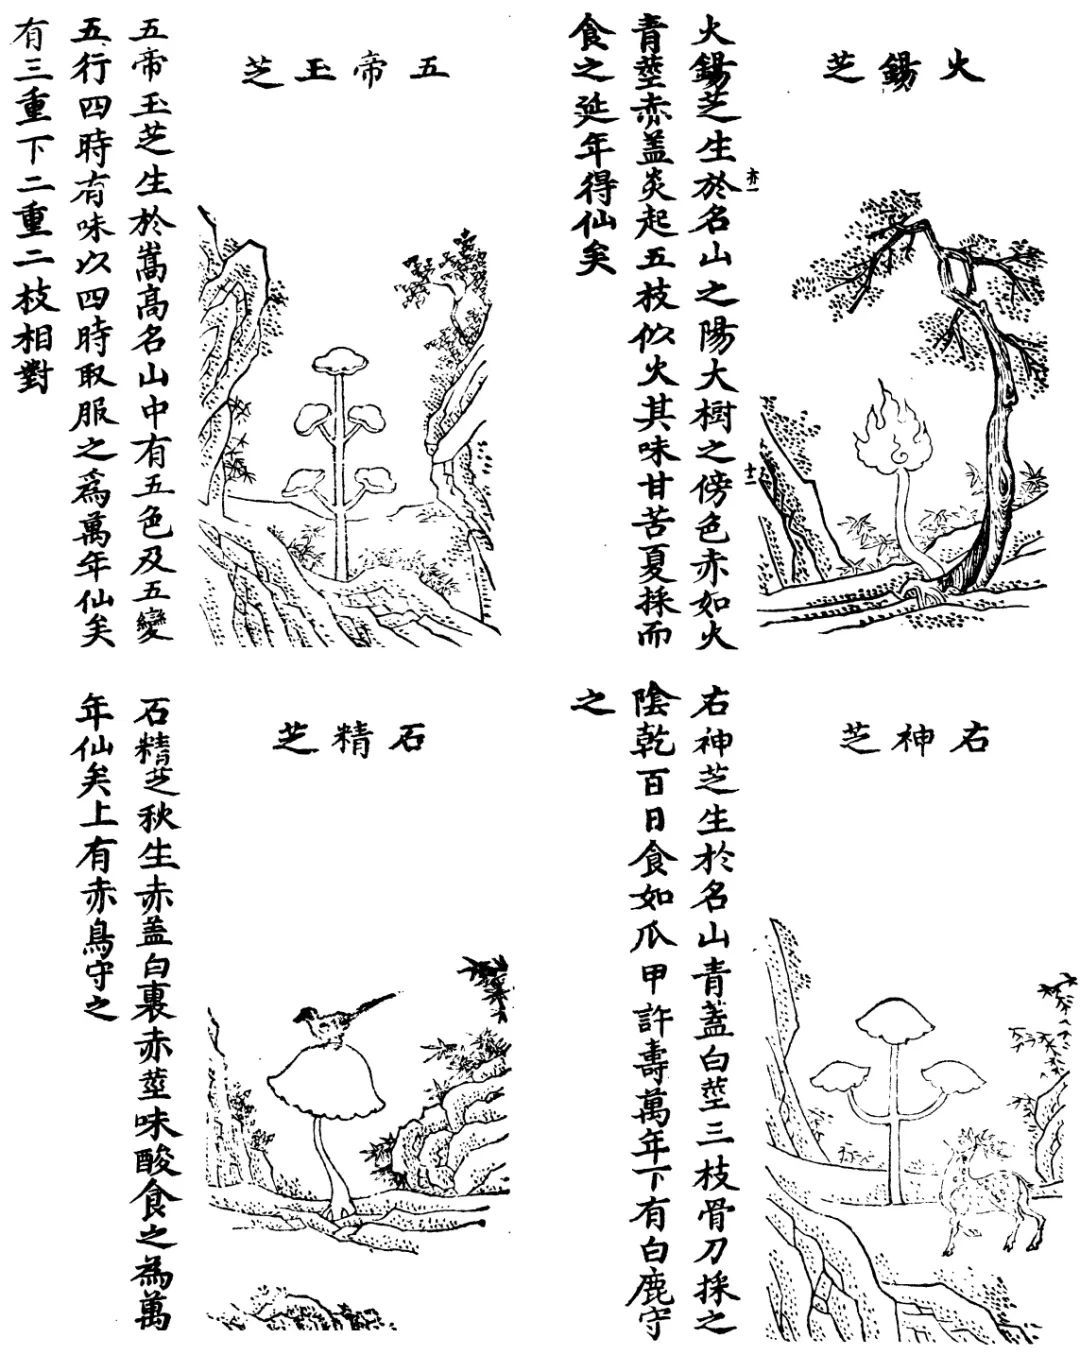 火錫芝
火錫芝生於名山之陽大樹之傍色赤如火
青莖赤盖炎起五枝似火其味甘苦夏採而
食之延年得仙矣
亦一
十二
五帝玉芝
五帝玉芝生於嵩高名山中有五色及五變
五行四時有味以四時取服之爲萬年仙矣
有三重下二重二枝相對
右神芝
右神芝生於名山青蓋白莖三枝骨刀採之
陰乾百日食如瓜甲許壽萬年下有白鹿守
之
石精芝
石精芝秋生赤盖白裏赤莖味酸食之為萬
年仙矣上有赤鳥守之